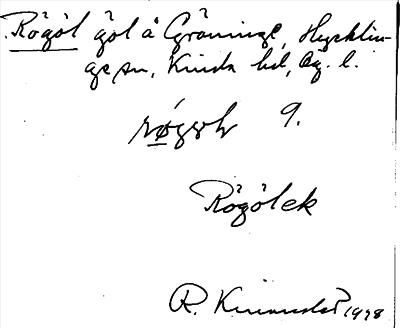 Rögöl göl å Gräninge, Hycklin-
ge sn, Kinda hd, Ög. l.
9.
Rögölek
R. Kinander 1928